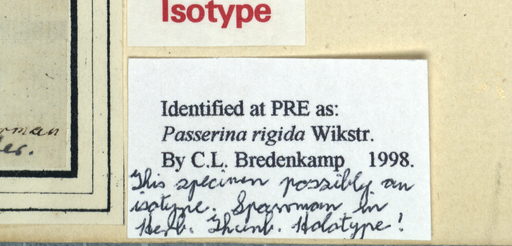 Isotype
Identified at PRE as:
Passerina rigida Wikstr.
By C.L. Bredenkamp 1998.
This specimen possibly an
isotype. Sparrman in
Herb. Thunb. Holotype!